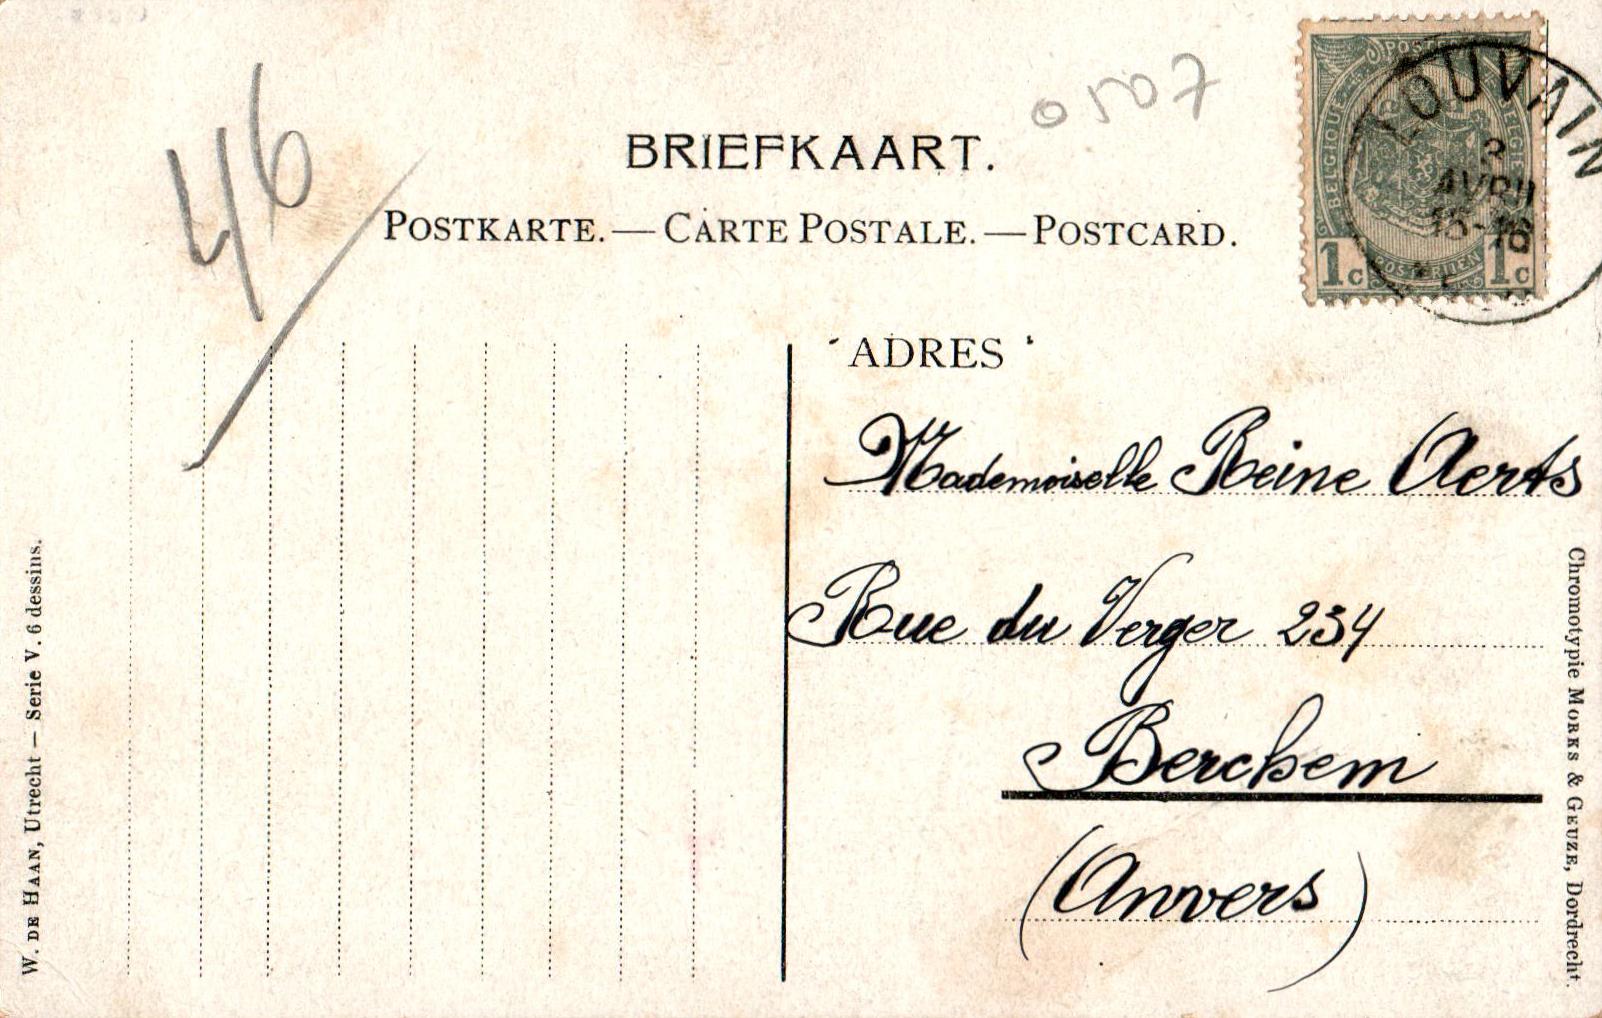 46
0507
BRIEFKAART.
POSTKARTE. — CARTE POSTALE. — POSTCARD.
POSTES
BELGIQUE
BELGIË
POSTERIJEN
1c 1c
LOUVAIN
3
AVRIL
15-16
ADRES
Mademoiselle Reine Aerts
Rue du Verger 234
Berchem
(Anvers)
W. DE HAAN, Utrecht — Serie V. 6 dessins.
Chromotypie MORKS & GEUZE, Dordrecht.